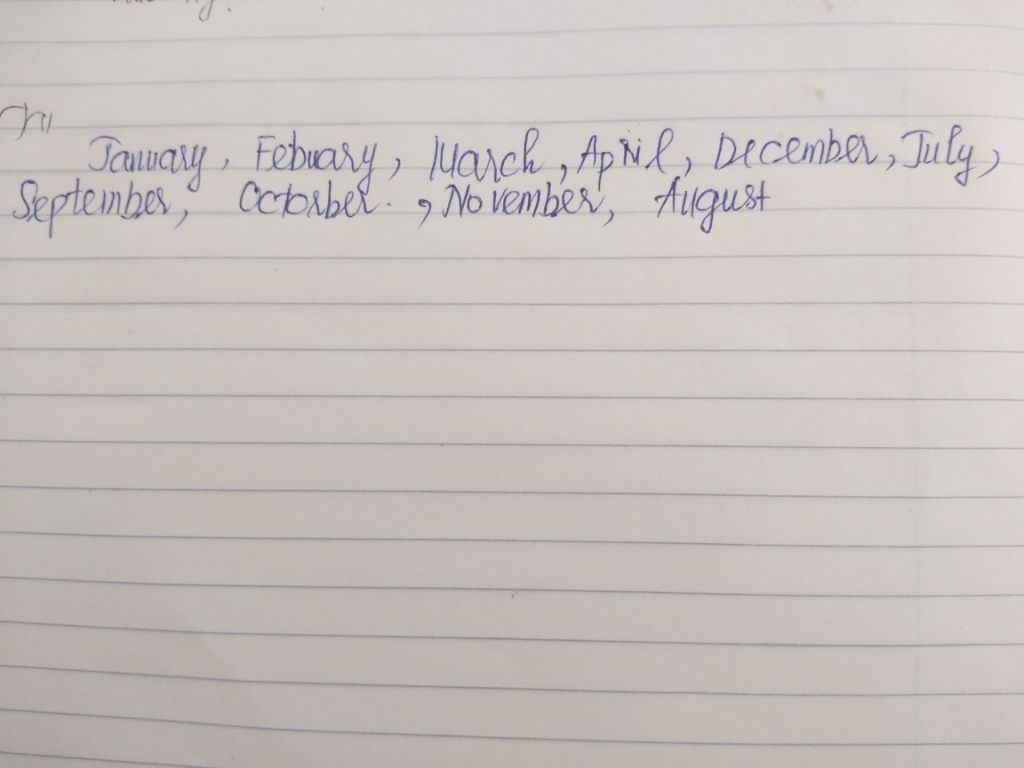 January, Febuary, March, April, December, July,
September, Octorber. , November, August